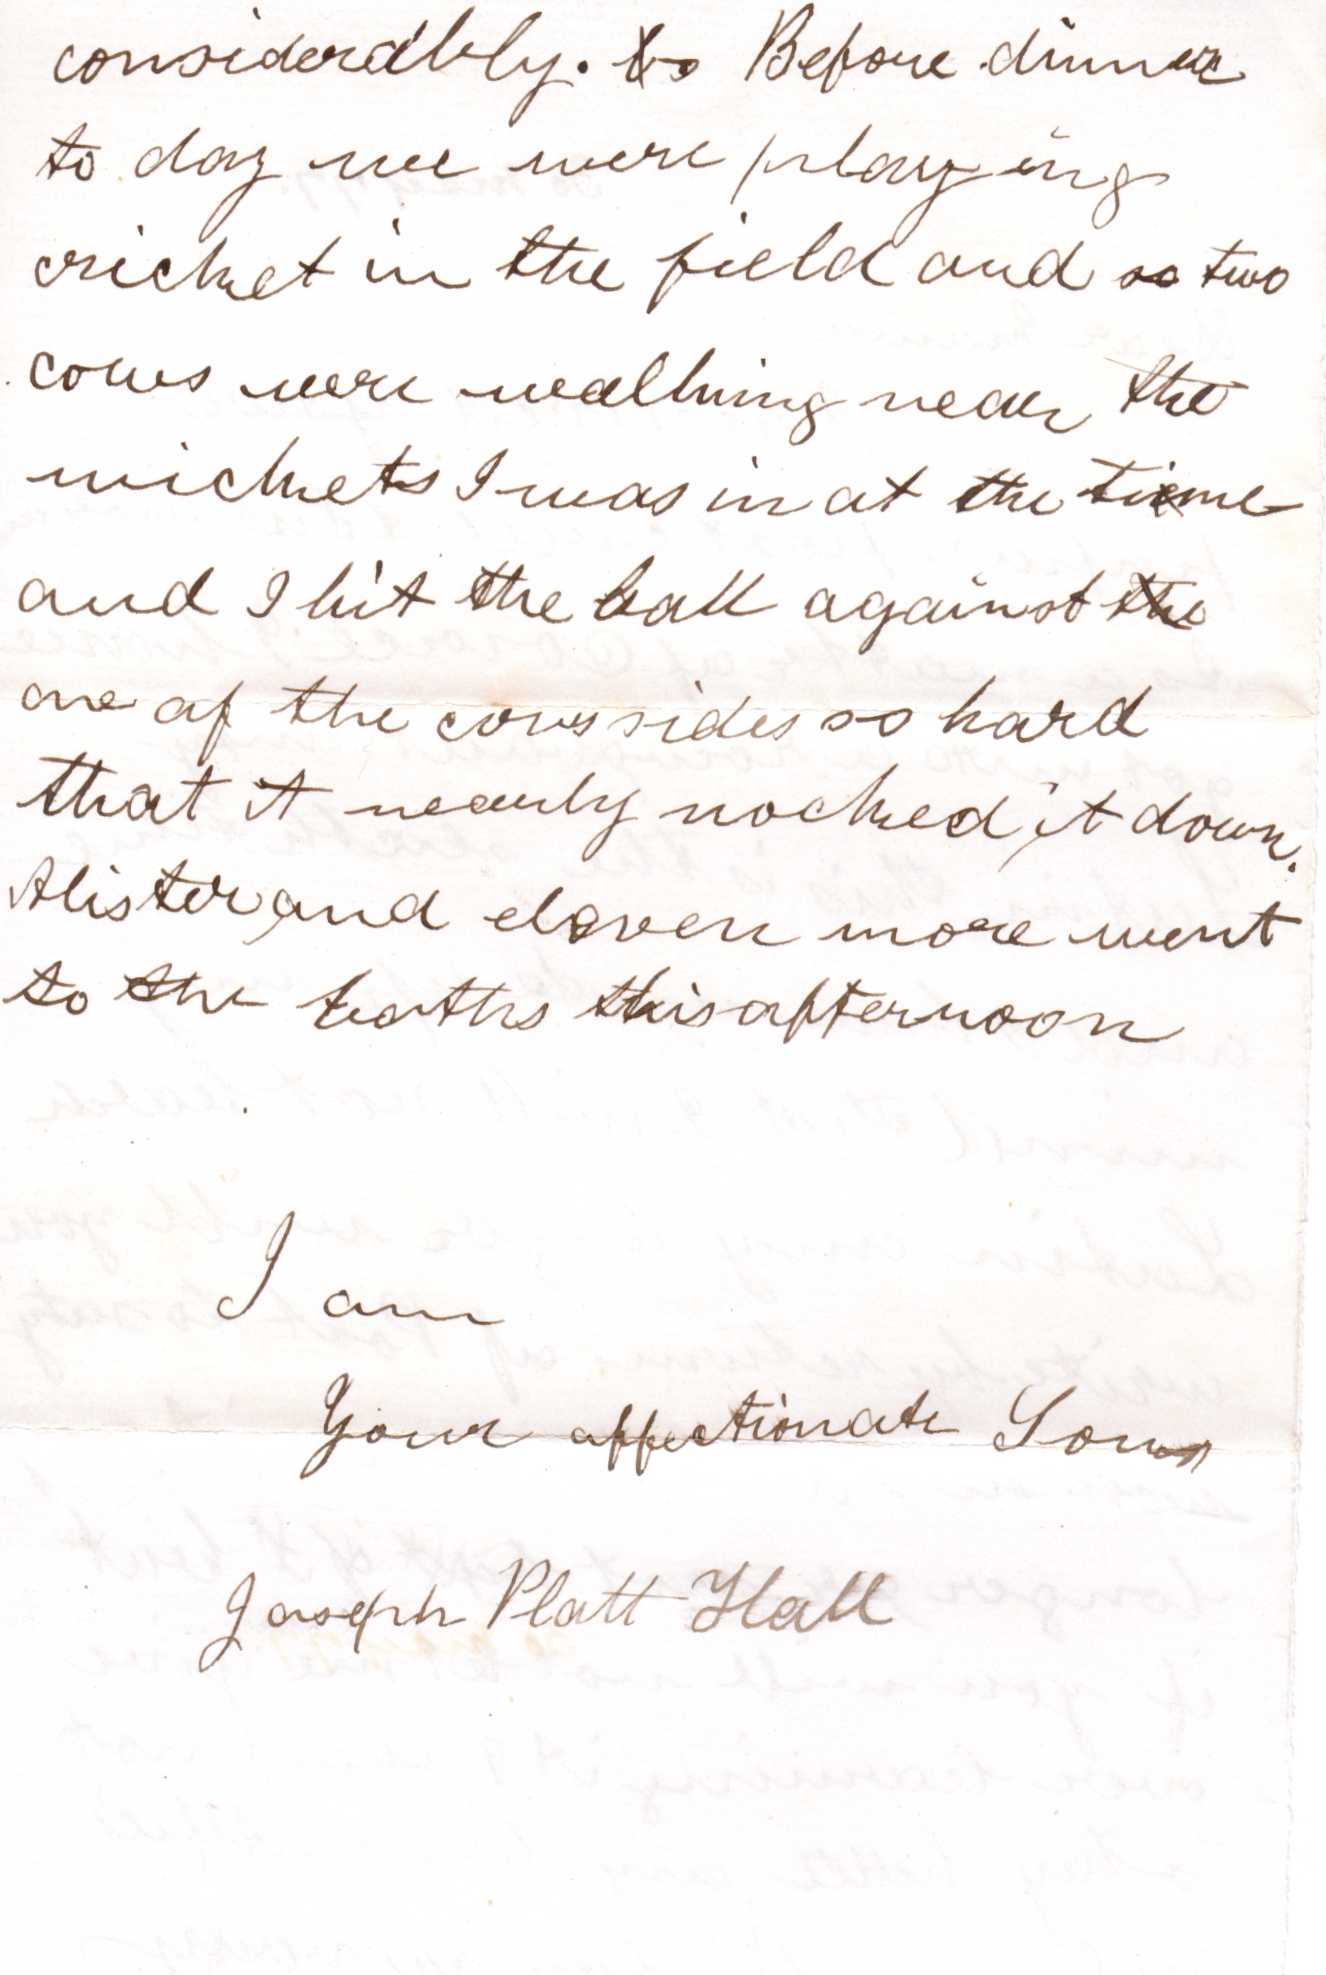 considerably. Before dinner
to day we were playing
cricket in the field and so two
cows were walking near the
wickets I was in at the time
and I hit the ball against the
one of the cows sides so hard
that it nearly nocked it down.
Alister and eleven more went
to the baths this afternoon
I am
Your affectionate Son
Joseph Platt Hall